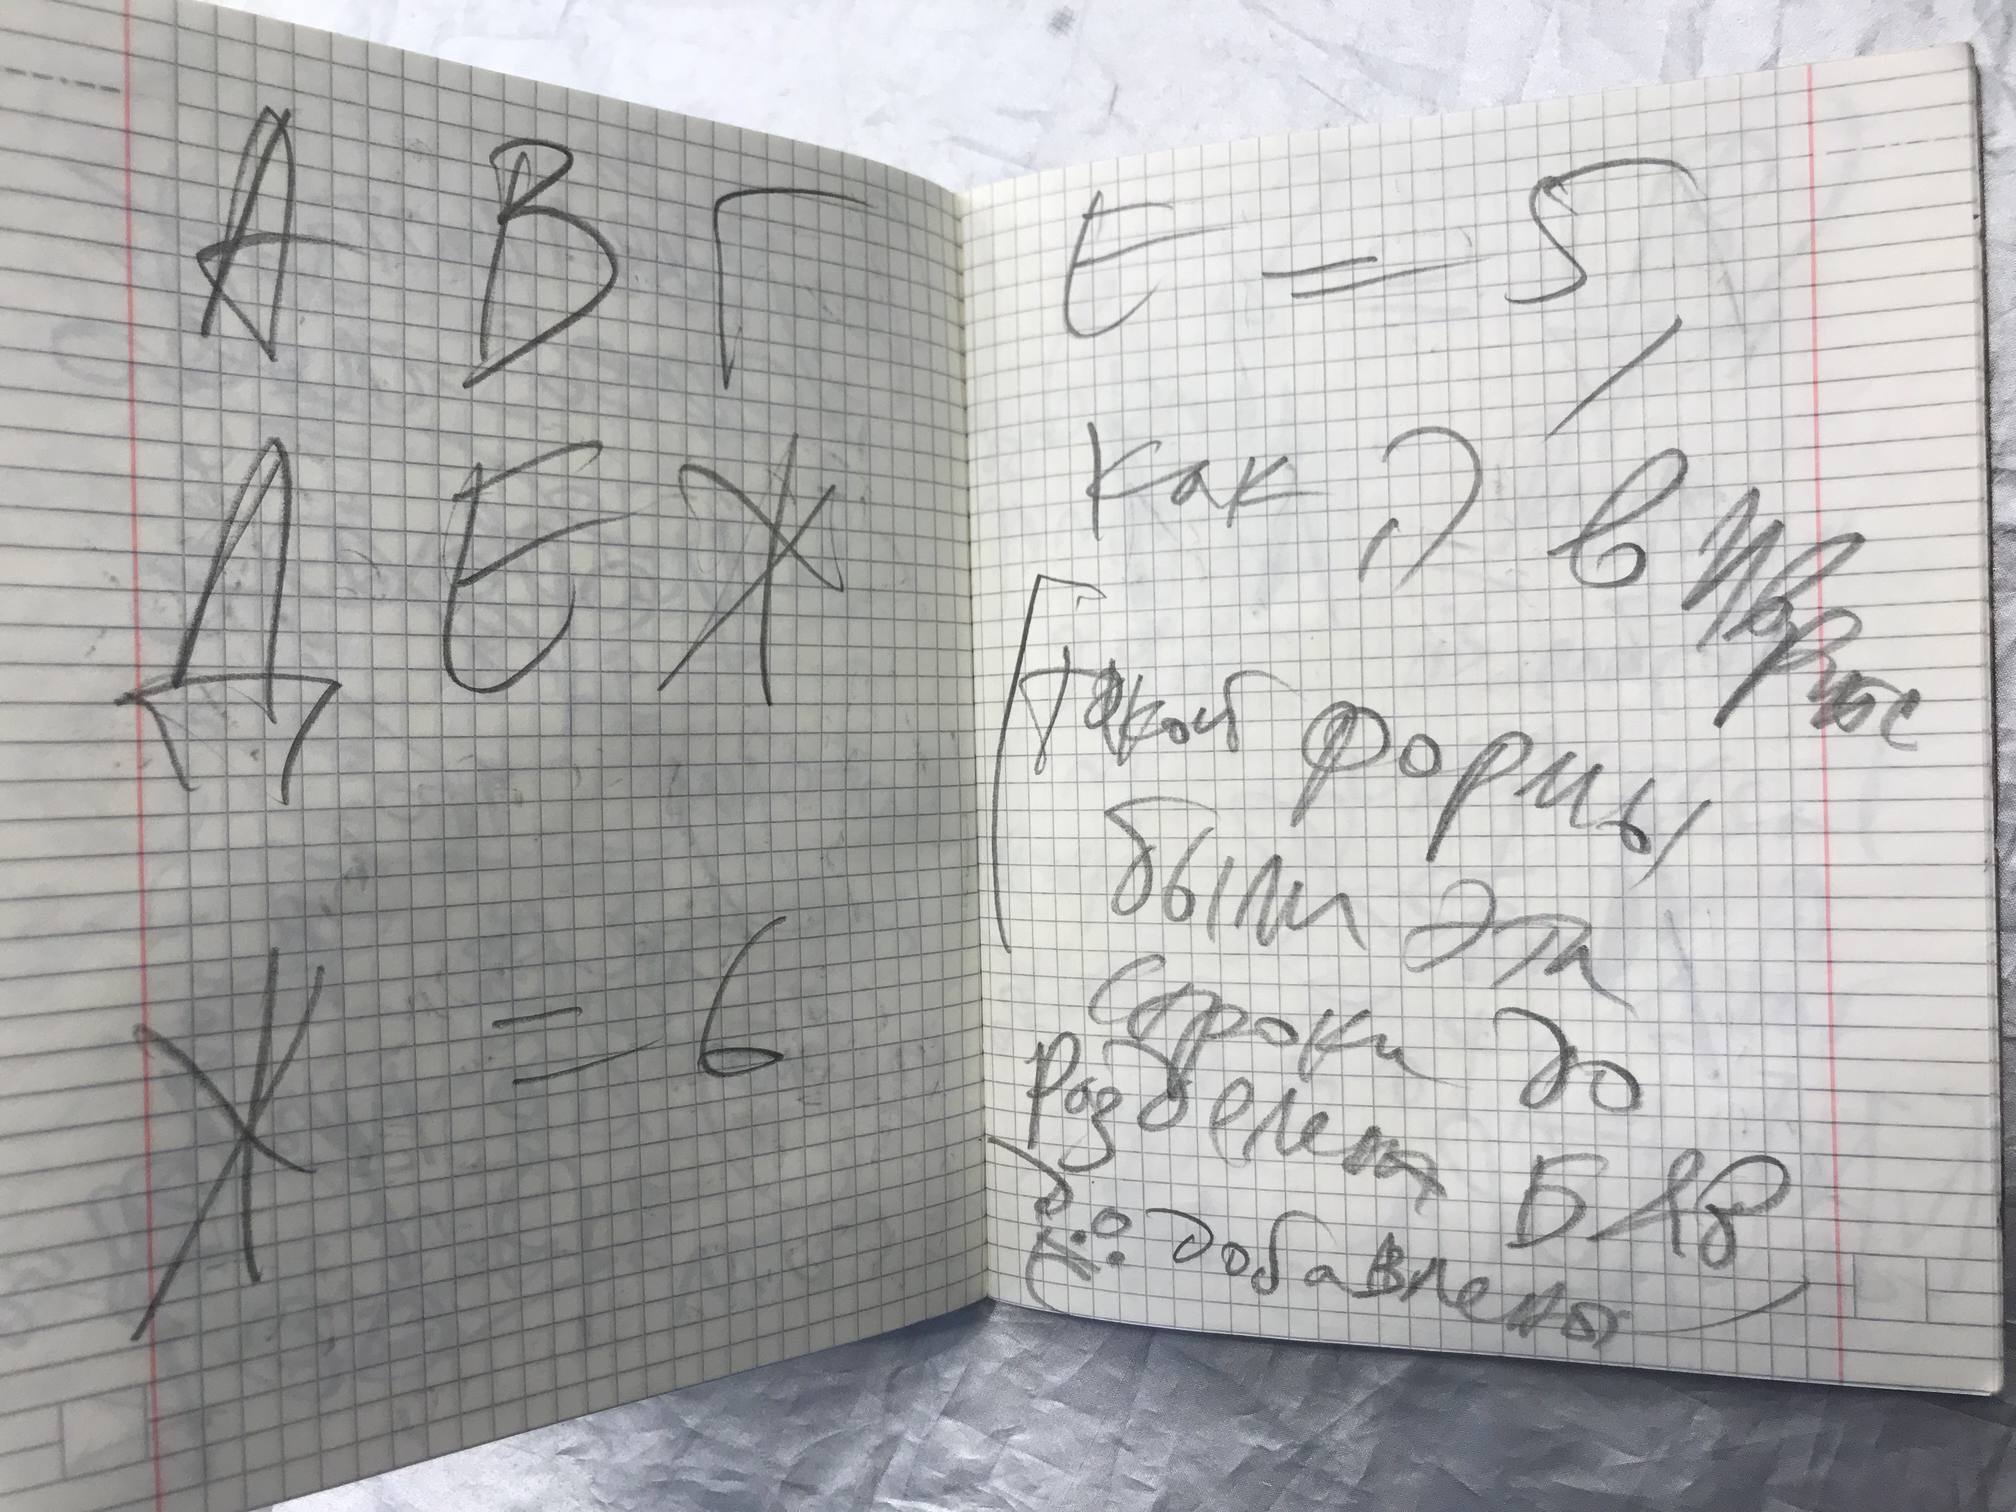 А В Г
Д Е Ж
Ж = 6
Е = 5,
как ה в иврите
[такой формы
были эти
строки до
разделения Б и В
добавлена